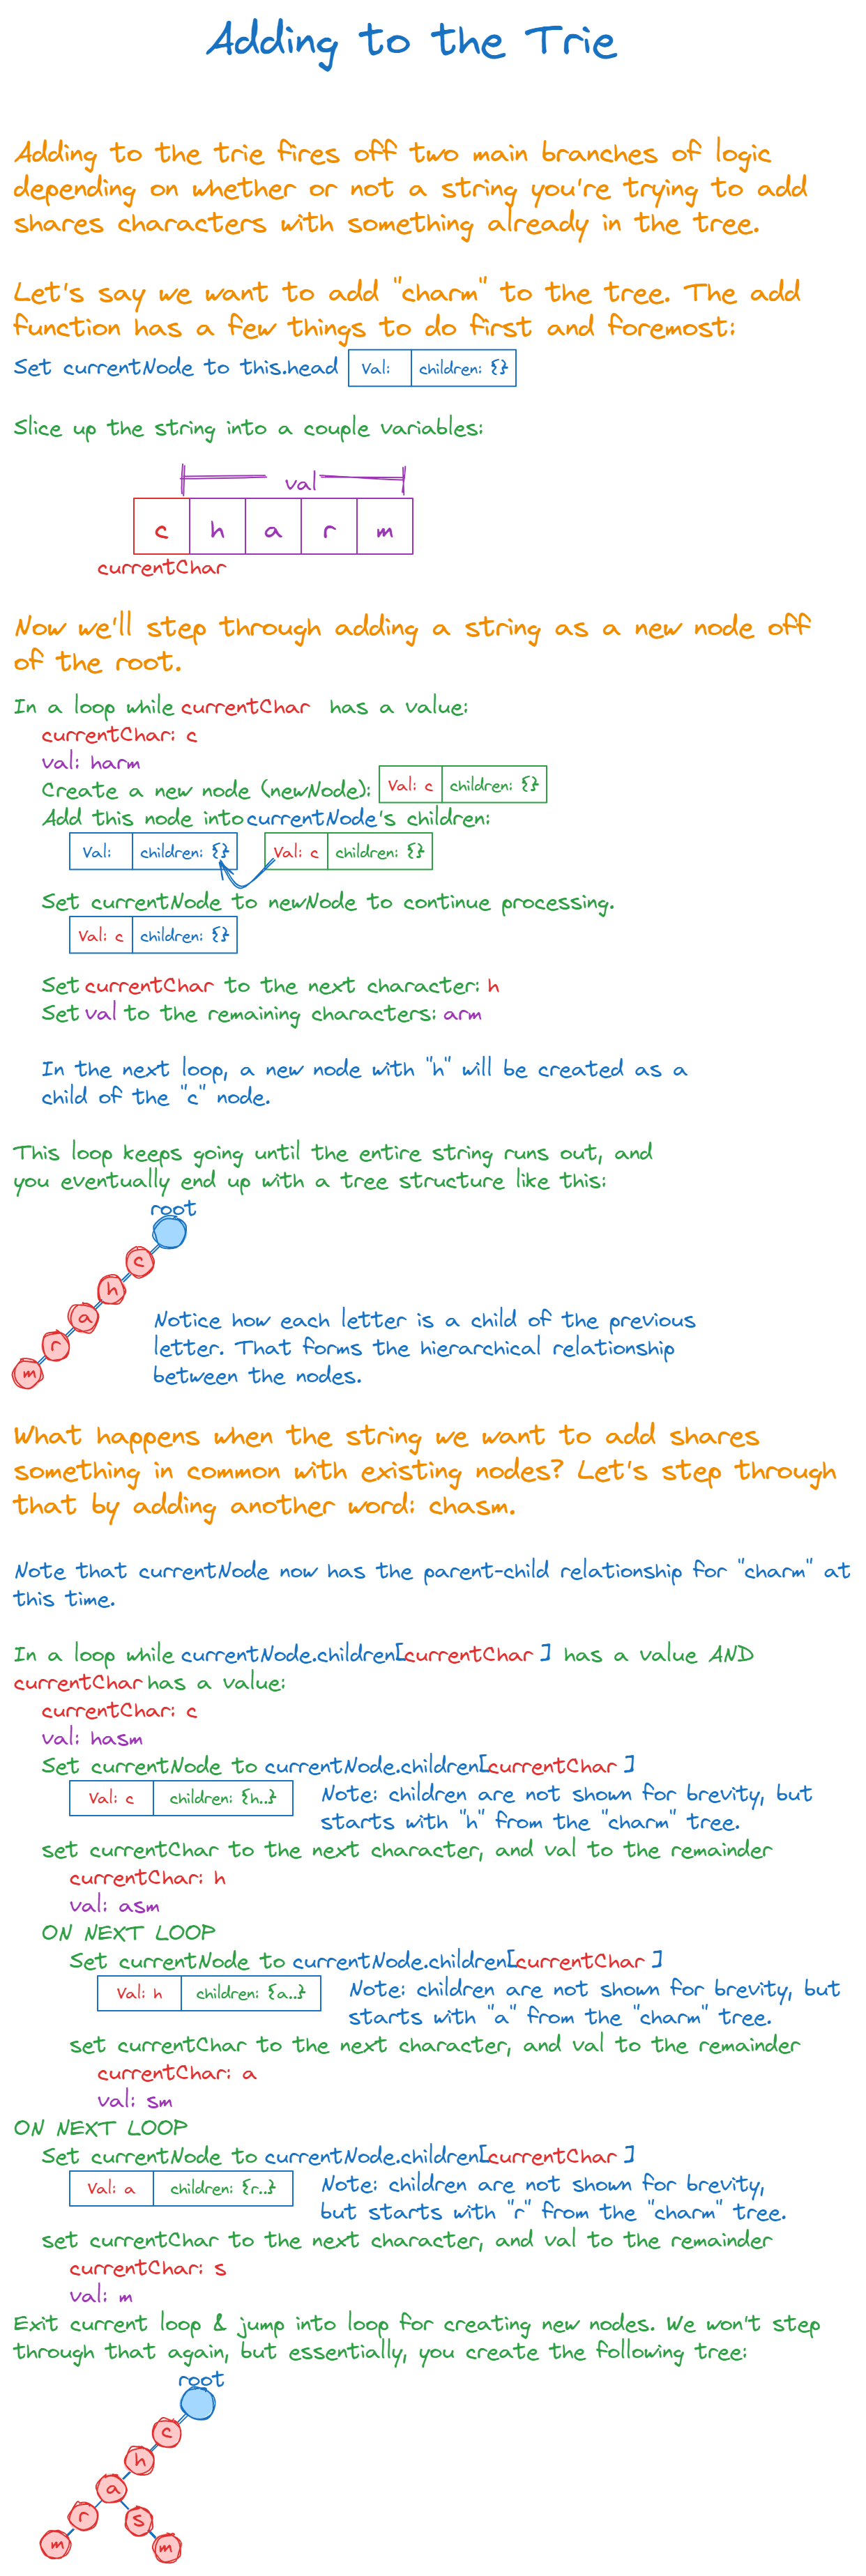 Adding to the Trie
Adding to the trie fires off two main branches of logic
depending on whether or not a string you're trying to add
shares characters with something already in the tree.
Let's say we want to add "charm" to the tree. The add
function has a few things to do first and foremost:
Set currentNode to this.head Val: children: {}
Slice up the string into a couple variables:
val
c h a r m
currentChar
Now we'll step through adding a string as a new node off
of the root.
In a loop while currentChar has a value:
currentChar: c
val: harm
Create a new node (newNode): Val: c children: {}
Add this node into currentNode's children:
Val: children: {} Val: c children: {}
Set currentNode to newNode to continue processing.
Val: c children: {}
Set currentChar to the next character: h
Set val to the remaining characters: arm
In the next loop, a new node with "h" will be created as a
child of the "c" node.
This loop keeps going until the entire string runs out, and
you eventually end up with a tree structure like this:
root
c
h
a
r
m
Notice how each letter is a child of the previous
letter. That forms the hierarchical relationship
between the nodes.
What happens when the string we want to add shares
something in common with existing nodes? Let's step through
that by adding another word: chasm.
Note that currentNode now has the parent-child relationship for "charm" at
this time.
In a loop while currentNode.children[currentChar ] has a value AND
currentChar has a value:
currentChar: c
val: hasm
Set currentNode to currentNode.children[currentChar ]
Val: c children: {h..} Note: children are not shown for brevity, but
starts with "h" from the "charm" tree.
set currentChar to the next character, and val to the remainder
currentChar: h
val: asm
ON NEXT LOOP
Set currentNode to currentNode.children[currentChar ]
Val: h children: {a..} Note: children are not shown for brevity, but
starts with "a" from the "charm" tree.
set currentChar to the next character, and val to the remainder
currentChar: a
val: sm
ON NEXT LOOP
Set currentNode to currentNode.children[currentChar ]
Val: a children: {r..} Note: children are not shown for brevity,
but starts with "r" from the "charm" tree.
set currentChar to the next character, and val to the remainder
currentChar: s
val: m
Exit current loop & jump into loop for creating new nodes. We won't step
through that again, but essentially, you create the following tree:
root
c
h
a
r s
m m